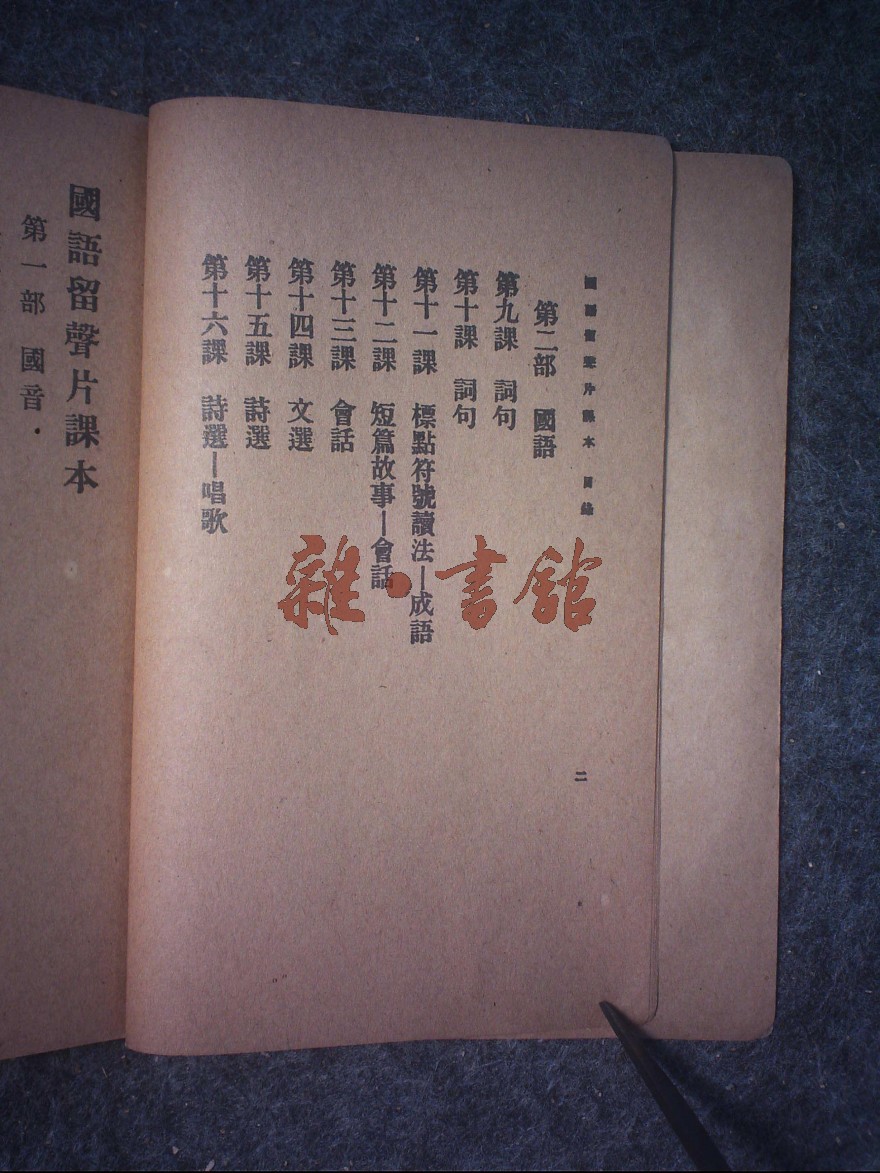 國語留聲片課本 目錄
二
第二部 國語
第九課 詞句
第十課 詞句
第十一課 標點符號讀法—成語
第十二課 短篇故事—會話
第十三課 會話
第十四課 文選
第十五課 詩選
第十六課 詩選—唱歌
國語留聲片課本
第一部 國音．
雜·書館